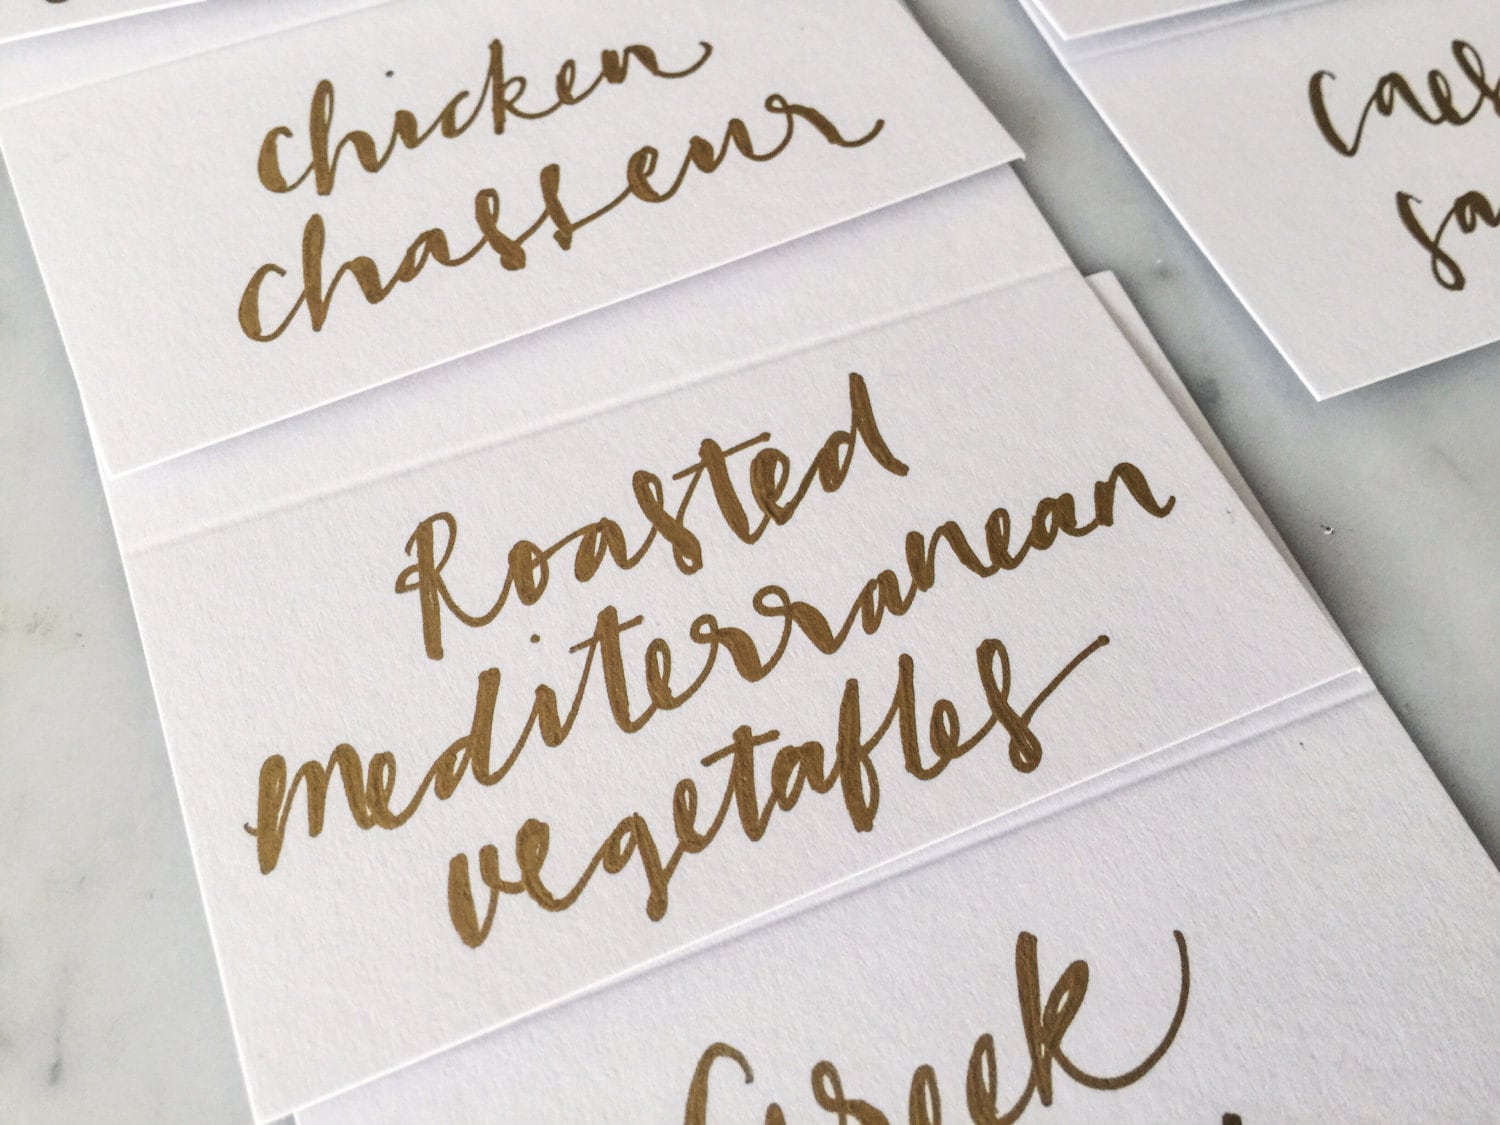 chicken
chasseur
Roasted
mediterranean
vegetables
Greek